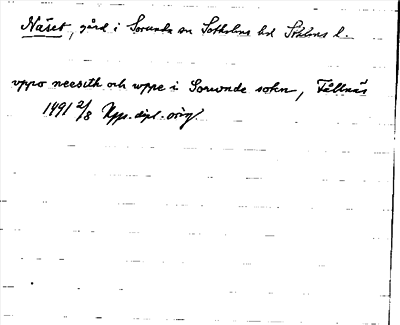 Näset, gård i Sorunda sn Sotholms hd Sthlms l.
uppo neesith och uppe i Sorwnde sokn, Fållnäs
1491 2/8 Upps. dipl. orig.